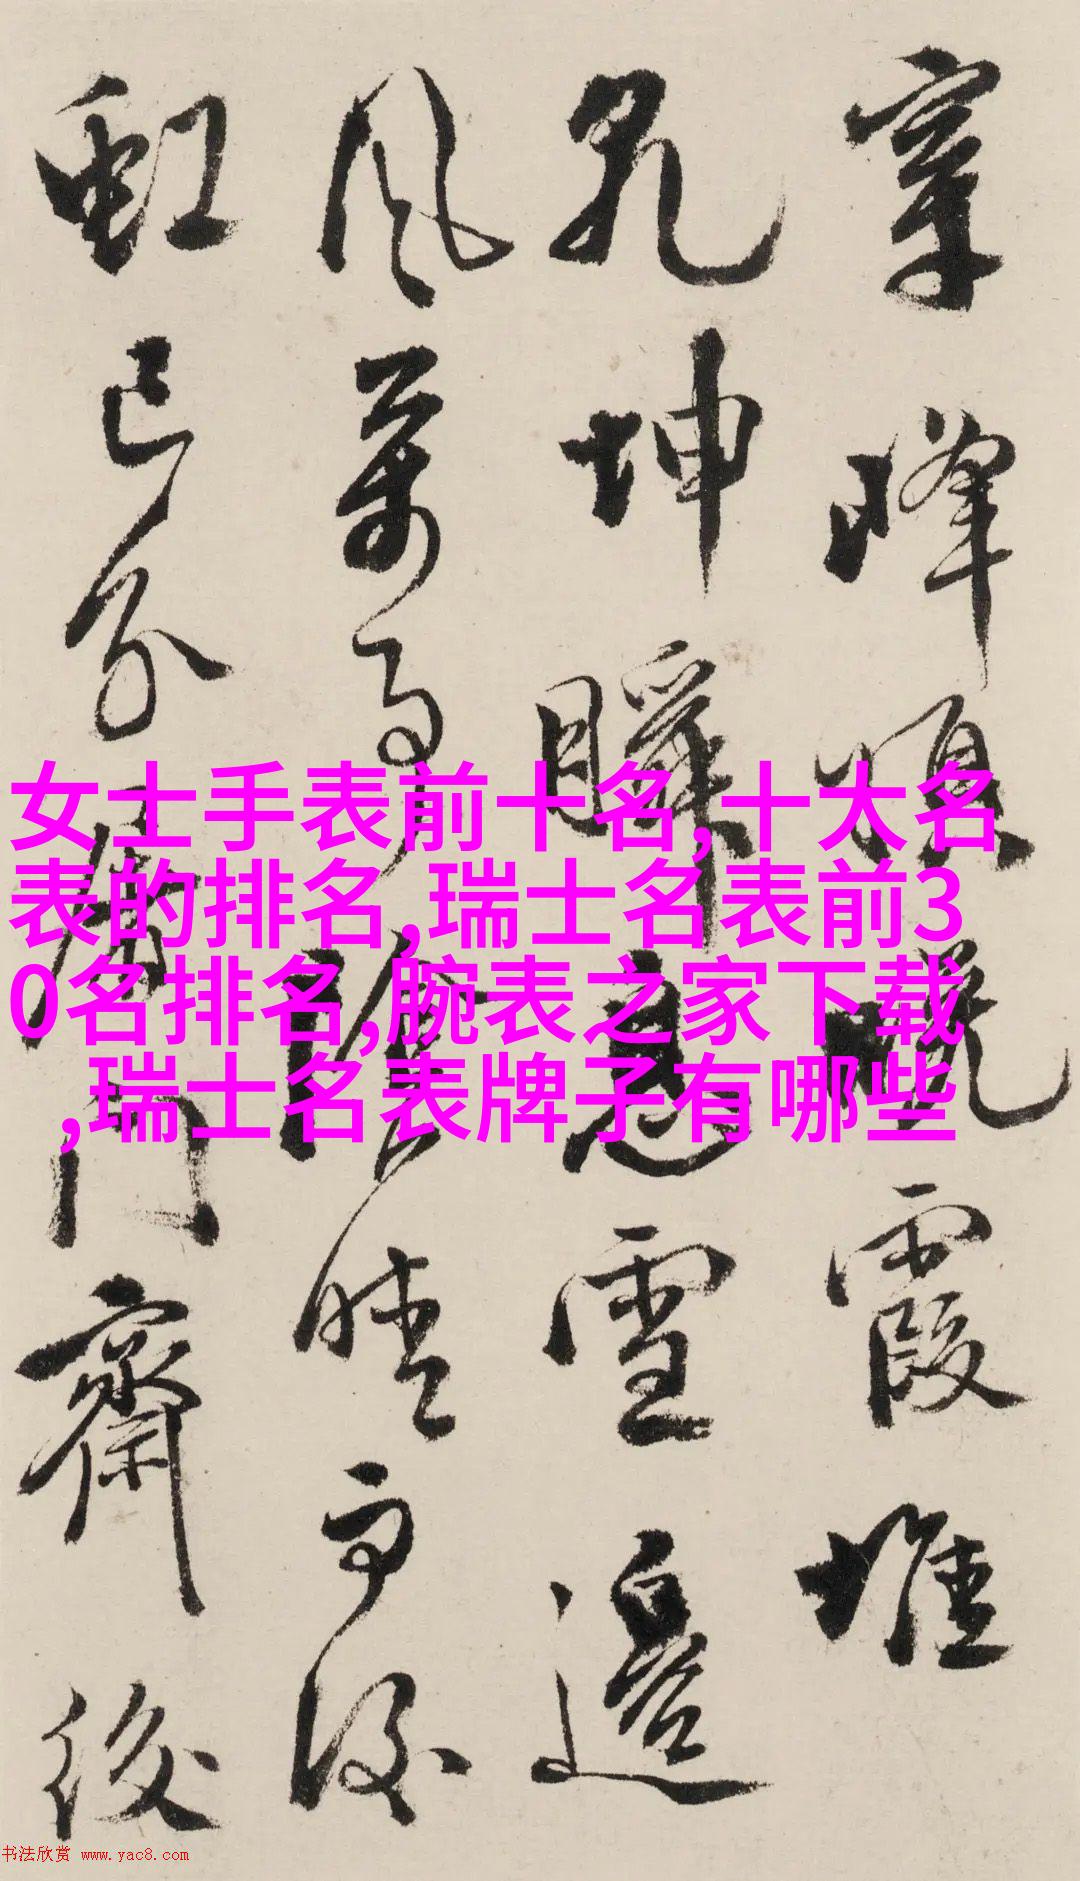 峰霞堆
坤瞬息雪邉
風萬事陰晴雨
虹已分屬門齋
女士手表前十名,十大名
表的排名,瑞士名表前3
0名排名,腕表之家下载
,瑞士名表牌子有哪些
书法欣赏 www.yac8.com